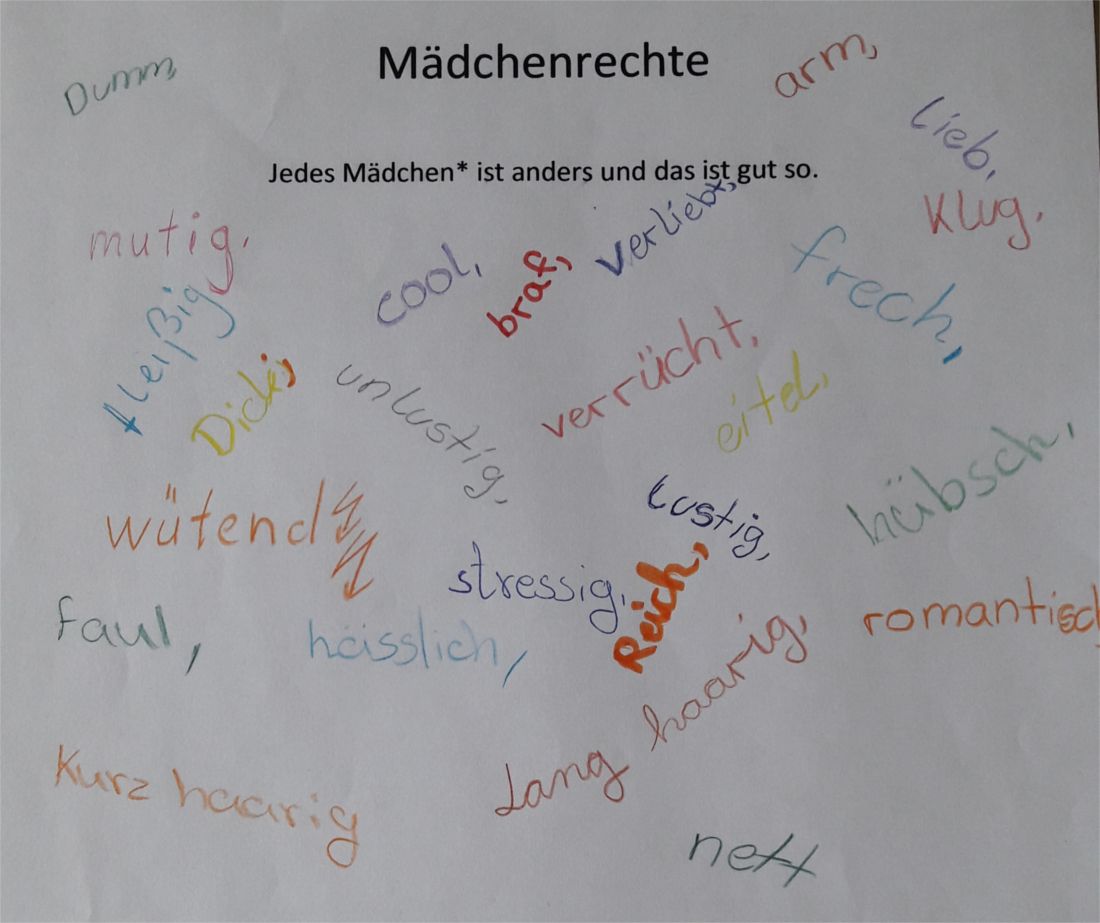 Mädchenrechte
Dumm,
arm,
lieb,
Jedes Mädchen* ist anders und das ist gut so.
mutig,
cool,
braf,
verliebt,
Klug.
frech,
fleißig
Dick,
unlustig,
verrücht,
eitel,
wütend
lustig,
hübsch,
stressig,
Reich,
faul,
hässlich,
romantisch
Lang haarig,
Kurz haarig
nett